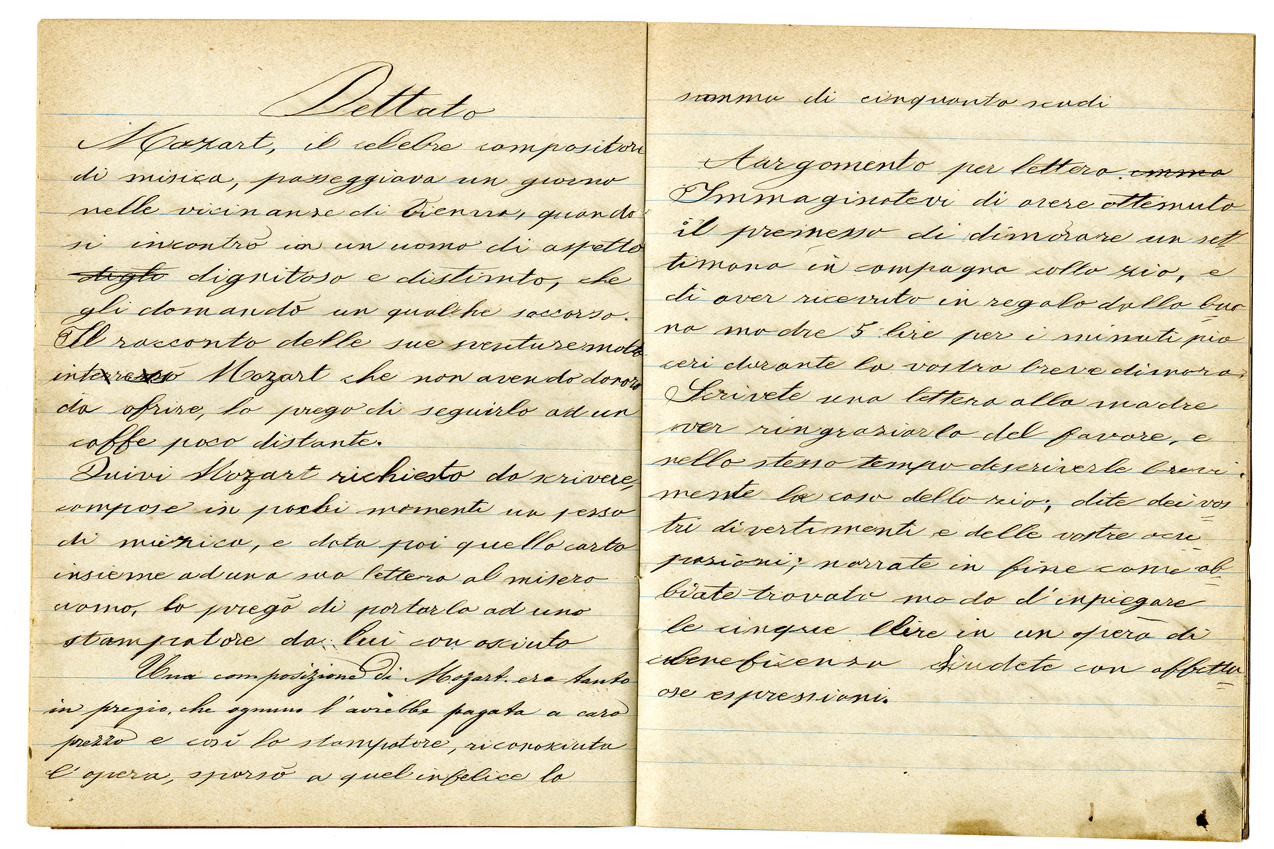 Dettato
Mozart, il celebre compositore
di misica, passeggiava un giorno
nelle vicinanze di Vienna, quando
si incontrò in un uomo di aspetto
dignitoso e distinto, che
gli domandò un qualche soccorso.
Il racconto delle sue sventure molto
Mozart che non avendo
da ofrire, lo pregò di seguirlo ad un
caffe poco distante.
Quivi Mozart richiesto da scrivere,
compose in pochi momenti un pesso
di musica, e data poi quella carta
insieme ad una sua lettera al misero
uomo, lo pregò di portarla ad uno
stampatore da lui conosciuto
Una composizione di Mozart era tanto
in pregio, che ognuno l'avrebbe pagata a caro
prezzo e così lo stampatore, riconosciuta
l'opera, sporsò a quel infelice la
somma di cinquanta scudi
Aargomento per lettera
Immaginatevi di avere ottenuto
il premesso di dimorare un set
timana in campagna collo zio, e
di aver ricevuto in regalo dalla buo
na madre 5 lire per i minuti pia
ceri durante la vostra breve dimora.
Scrivete una lettera alla madre
per ringraziarla del favore, e
nello stesso tempo descriverle brevi
mente la casa dello zio; dite dei vos
tri divertimenti e delle vostre occu
pazioni; narrate in fine come ab
biate trovato modo d'inpiegare
le cinque llire in un opera di
beneficenza con affettu
ose espressioni.